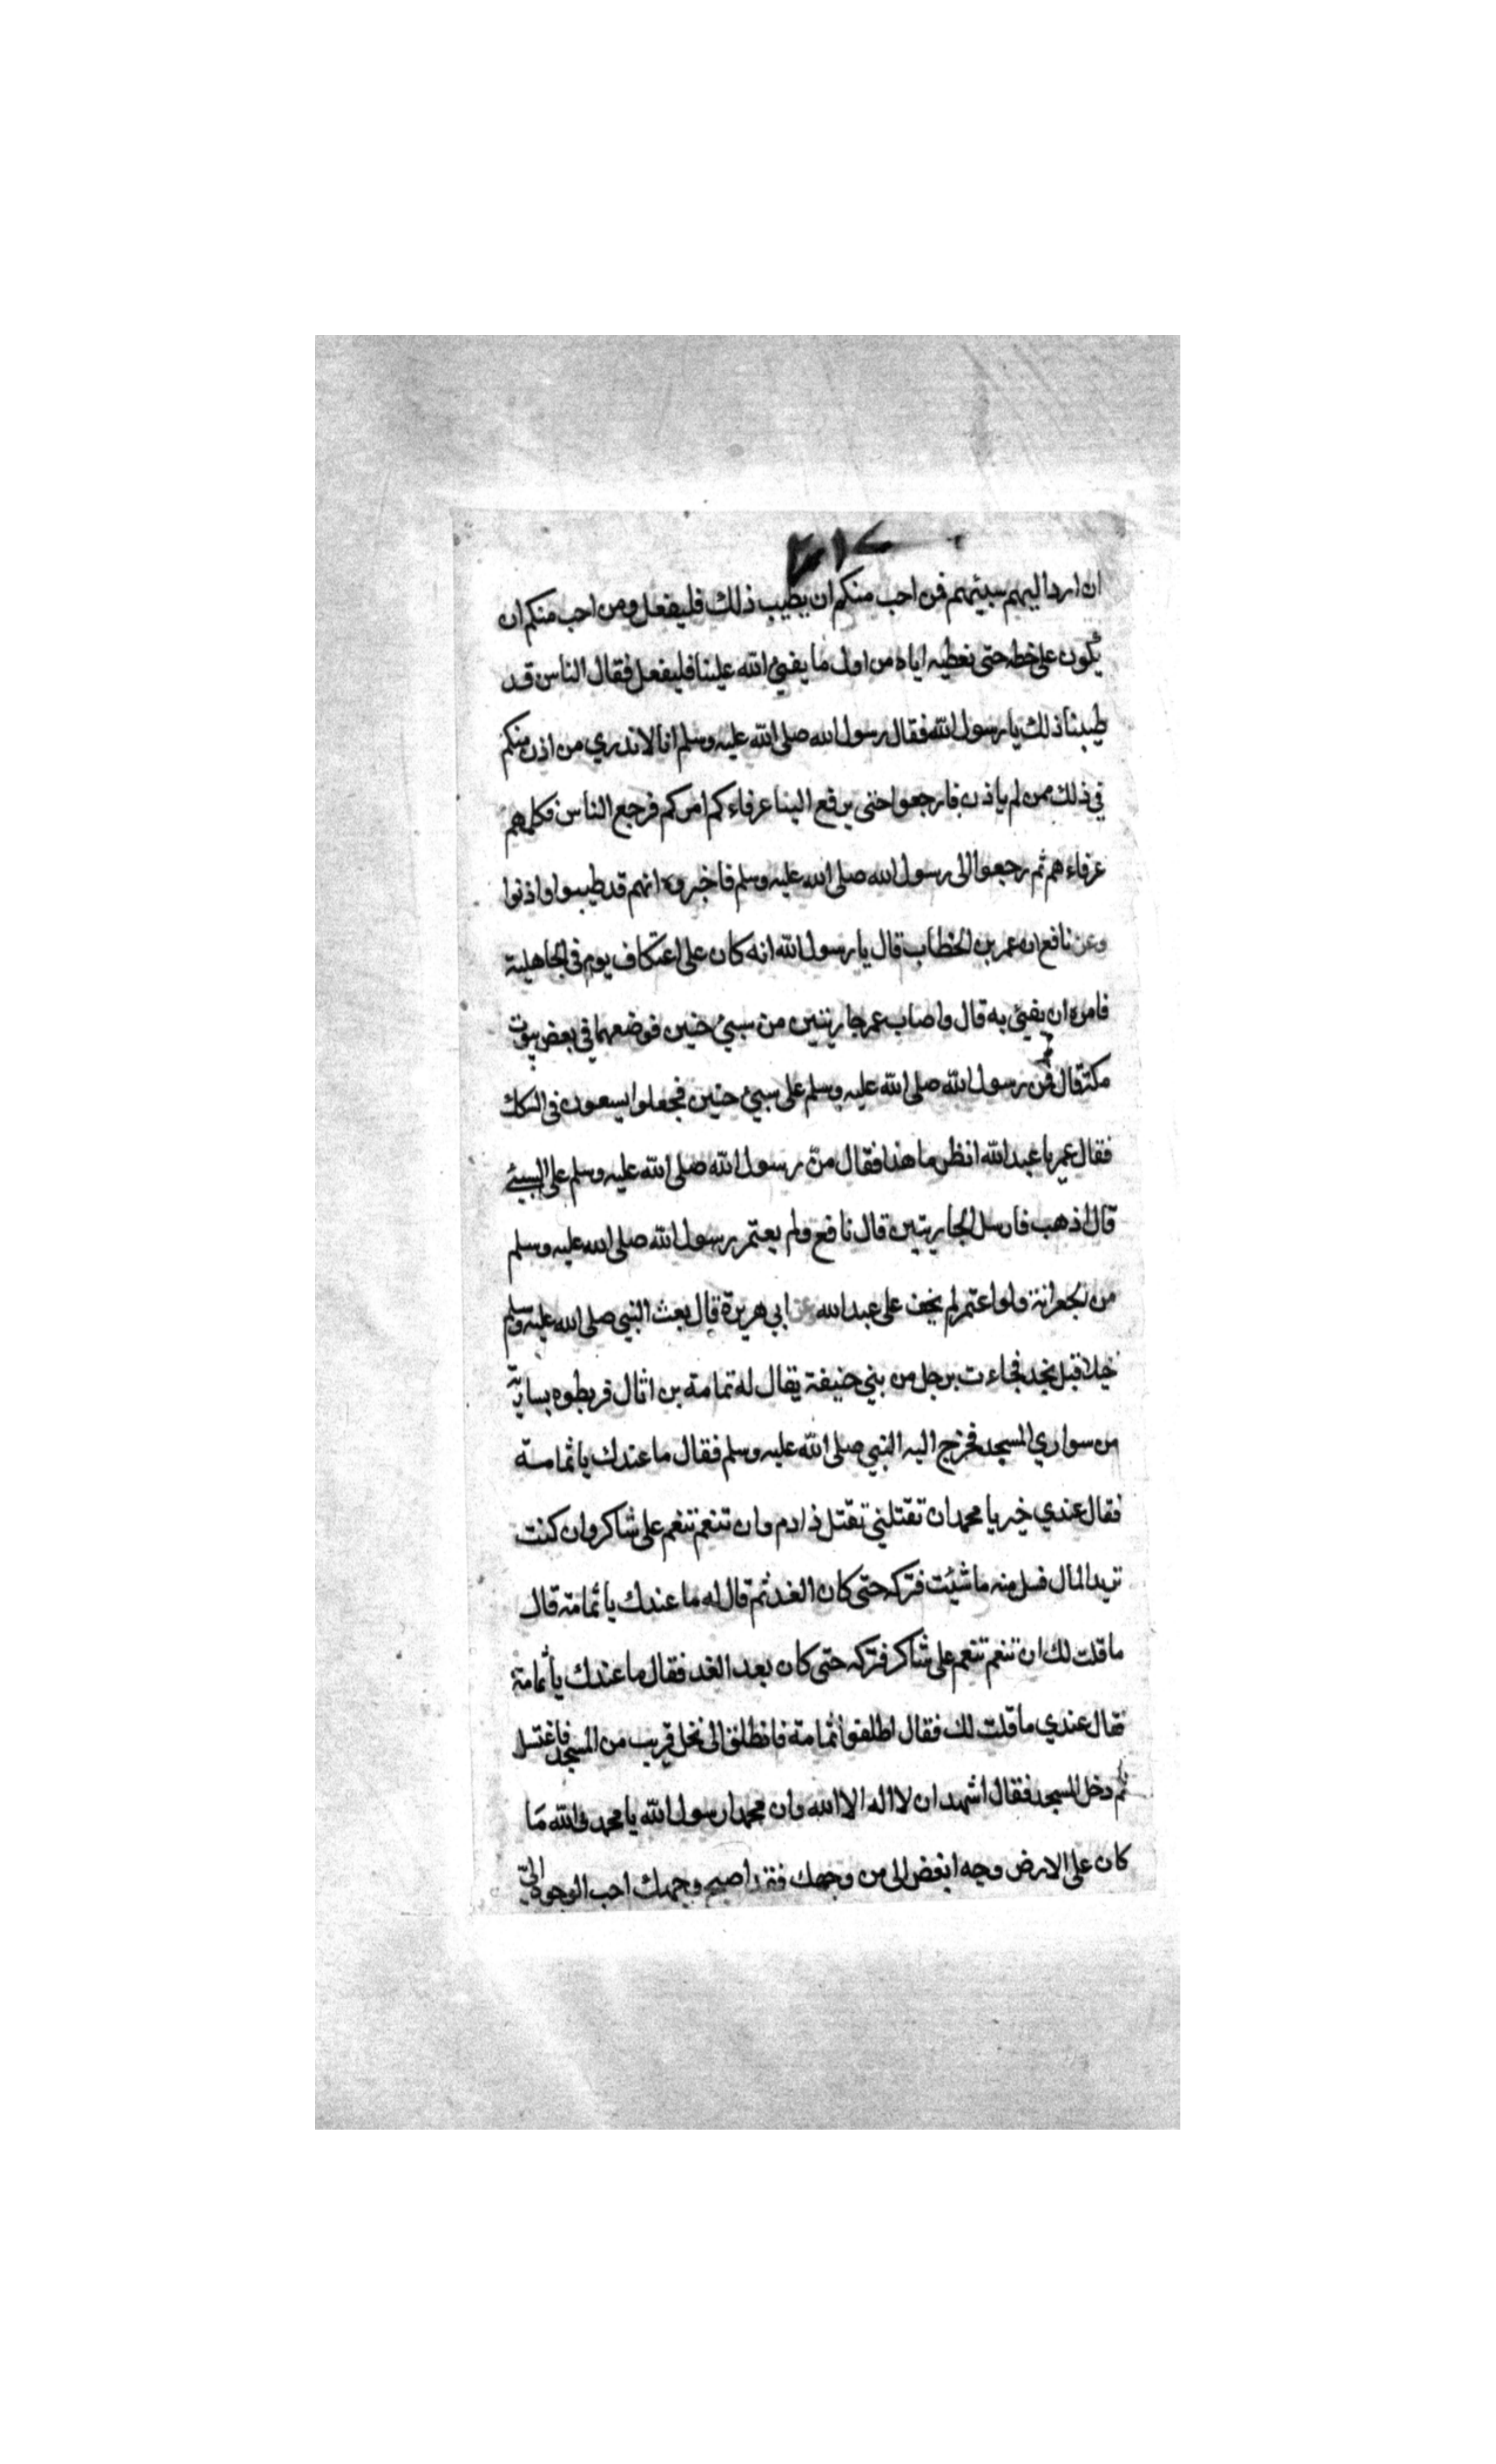 ان ارد اليهم سبيهم فمن احب منكم ان يطيب ذلك فليفعل ومن احب منكم ان
يكون على حظه حتى نعطيه اياه من اول ما يفيئ الله علينا فليفعل فقال الناس قد
طيبنا ذلك يا رسول الله فقال رسول الله صلى الله عليه وسلم انا لا ندري من اذن منكم
في ذلك ممن لم ياذن فارجعوا حتى يرفع الينا عرفاءكم امركم فرجع الناس فكلمهم
عرفاءهم ثم رجعوا الى رسول الله صلى الله عليه وسلم فاخبروه انهم قد طيبوا واذنوا
وعن نافع ان عمر بن الخطاب قال يا رسول الله انه كان على اعتكاف يوم في الجاهلية
فامره ان يفيئ به قال واصاب عمر جاريتين من سبئ حنين فوضعهما في بعض بيوت
مكة قال فمن رسول الله صلى الله عليه وسلم على سبئ حنين فجعلوا يسعون في السكك
فقال عمر يا عبد الله انظر ما هذا فقال من رسول الله صلى الله عليه وسلم على السبئ
قال اذهب فارسل الجاريتين قال نافع ولم يعتمر رسول الله صلى الله عليه وسلم
من الجعرانة ولو اعتمر لم يخف على عبد الله عن ابي هريرة قال بعث النبي صلى الله عليه وسلم
خيلا قبل نجد فجاءت برجل من بني حنيفة يقال له ثمامة بن اثال فربطوه بسارية
من سواري المسجد فخرج اليه النبي صلى الله عليه وسلم فقال ما عندك يا ثمامة
فقال عندي خير يا محمد ان تقتلني تقتل ذا دم وان تنعم تنعم على شاكر وان كنت
تريد المال فسل منه ما شئت فتركه حتى كان الغد ثم قال له ما عندك يا ثمامة قال
ما قلت لك ان تنعم تنعم على شاكر فتركه حتى كان بعد الغد فقال ما عندك يا ثمامة
فقال عندي ما قلت لك فقال اطلقوا ثمامة فانطلق الى نخل قريب من المسجد فاغتسل
ثم دخل المسجد فقال اشهد ان لا اله الا الله وان محمدا رسول الله يا محمد والله ما
كان على الارض وجه ابغض الى من وجهك فقد اصبح وجهك احب الوجوه الي